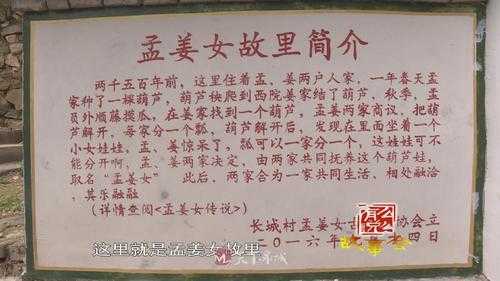 孟姜女故里简介
两千五百年前，这里住着孟、姜两户人家，一年春天孟
家种了一棵葫芦，葫芦秧爬到西院姜家结了葫芦，秋季，孟
员外顺藤摸瓜，在姜家找到一个葫芦，孟姜两家商议，把葫
芦解开，每家分一个瓢。葫芦解开后，发现在里面坐着一个
小女娃娃。孟、姜惊呆了，瓢可以家分一个，这娃娃可不
能分开啊，孟、姜两家决定，由两家共同抚养这个葫芦娃，
取名“孟姜女”　此后、两家合为一家共同生活、相处融洽
，其乐融融
（详情查阅<孟姜女传说>）
长城村孟姜女古 协会立
二〇一六年 四日
这里就是孟姜女故里